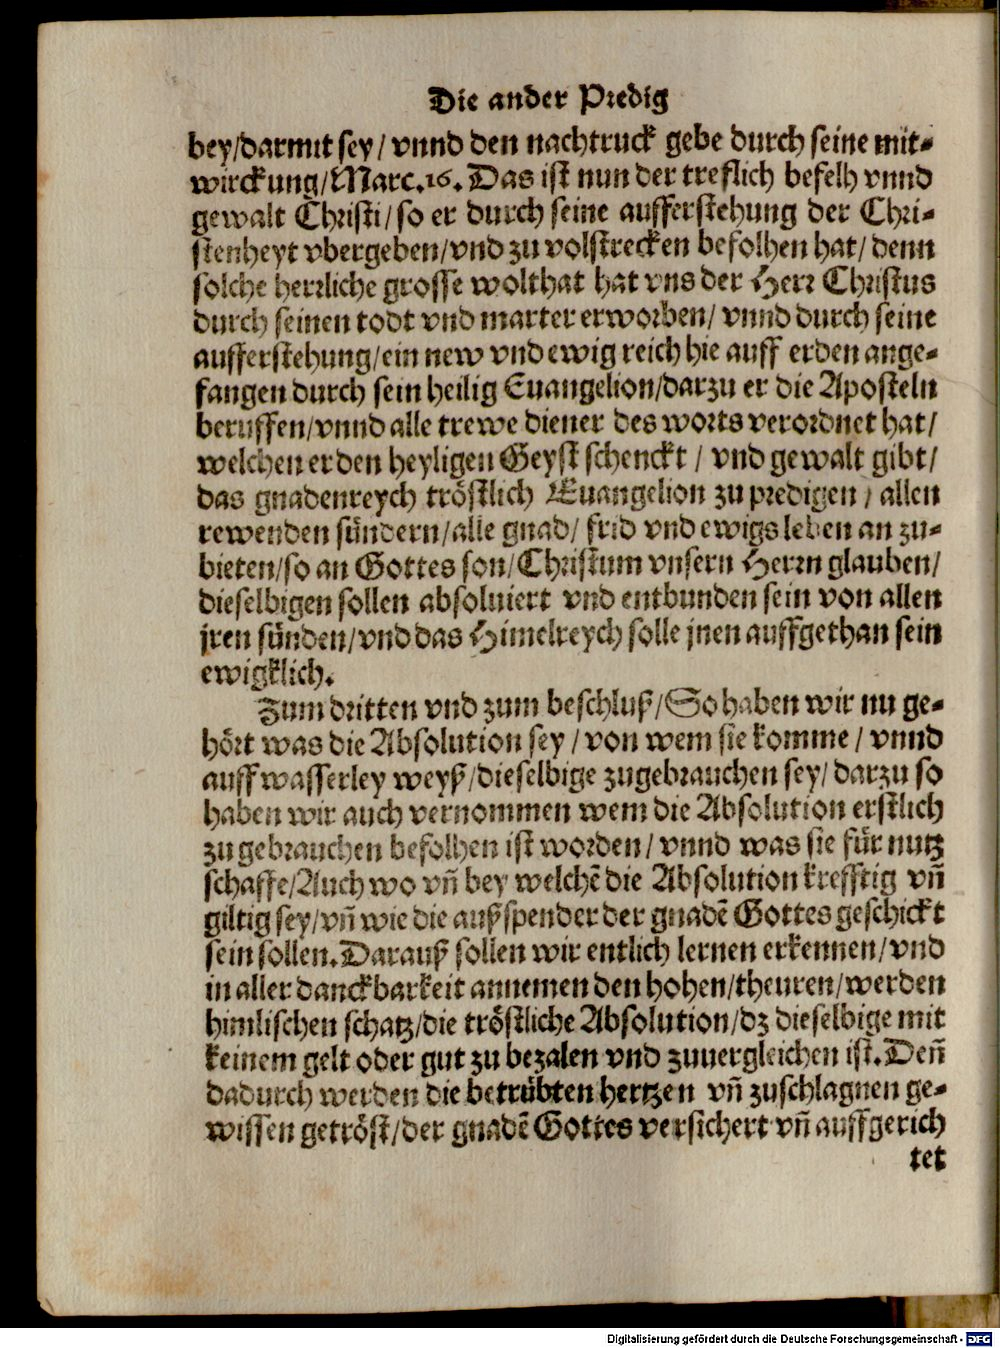 Die ander Predig
bey/darmit sey/ vnnd den nachtruck gebe durch seine mit-
wirckung/Marc.16. Das ist nun der treflich befelh vnnd
gewalt Christi/so er durch seine aufferstehung der Chri-
stenheyt vbergeben/vnd zu volstrecken befolhen hat/ denn
solche herrliche grosse wolthat hat vns der Herr Christus
durch seinen todt vnd marter erworben/ vnnd durch seine
aufferstehung/ein new vnd ewig reich hie auff erden ange-
fangen durch sein heilig Euangelion/darzu er die Aposteln
beruffen/vnnd alle trewe diener des worts verordnet hat/
welchen er den heyligen Geyst schenckt / vnd gewalt gibt/
das gnadenreych tröstlich Euangelion zu predigen / allen
rewenden sündern/alle gnad/ frid vnd ewigs leben an zu-
bieten/so an Gottes son/Christum vnsern Herrn glauben/
dieselbigen sollen absoluiert vnd entbunden sein von allen
jren sünden/vnd das Himelreych solle jnen auffgethan sein
ewigklich.
Zum dritten vnd zum beschluß/So haben wir nu ge-
hört was die Absolution sey / von wem sie komme / vnnd
auff wasserley weyß/dieselbige zugebrauchen sey/ darzu so
haben wir auch vernommen wem die Absolution erstlich
zu gebrauchen befolhen ist worden/ vnnd was sie für nutz
schaffe/Auch wo vñ bey welchẽ die Absolution krefftig vñ
giltig sey/vñ wie die außspender der gnadẽ Gottes geschickt
sein sollen. Darauß sollen wir entlich lernen erkennen/vnd
in aller danckbarkeit annemen den hohen/theuren/werden
himlischen schatz/die tröstliche Absolution/dz dieselbige mit
keinem gelt oder gut zu bezalen vnd zuuergleichen ist. Deñ
dadurch werden die betrübten hertzen vñ zuschlagnen ge-
wissen getröst/der gnadẽ Gottes versichert vñ auffgerich
tet
Digitalisierung gefördert durch die Deutsche Forschungsgemeinschaft - DFG